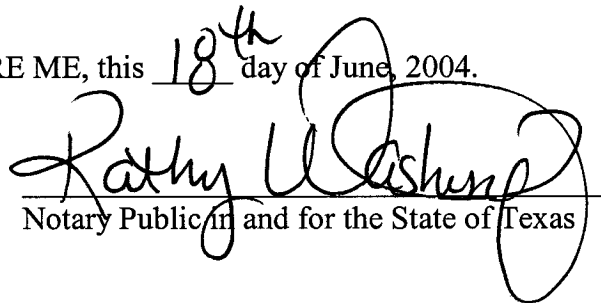 RE ME, this 18th day of June, 2004.
Kathy
Notary Public in and for the State of Texas